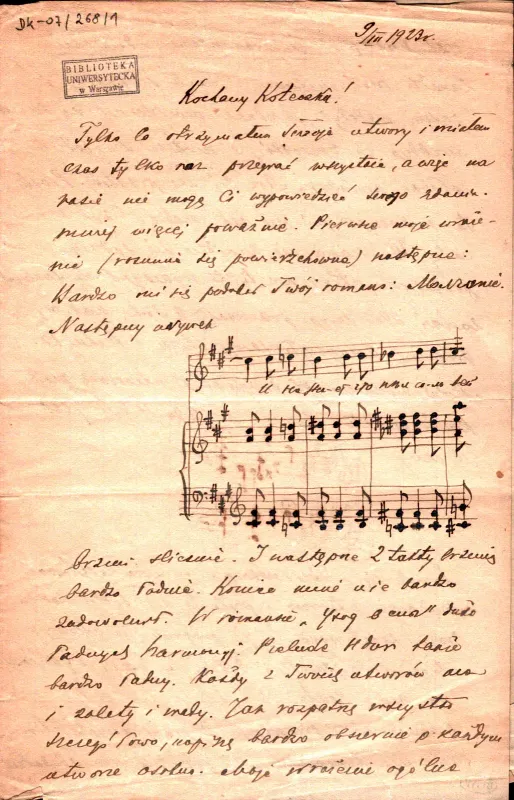 Dk-07/268/1
9/III 1923 r.
BIBLIOTEKA
UNIWERSYTECKA
w Warszawie
Kochany Koteczku!
Tylko co otrzymałem Twoje utwory i miałem
czas tylko raz przegrać wszystkie, a więc na
razie nie mogę Ci wypowiedzieć swego zdania
mniej więcej poważnie. Pierwsze moje wraże-
nie (rozumie się powierzchowne) następne:
Bardzo mi się podobał Twój romans: Молчание.
Następny urywek
brzmi ślicznie. I następne 2 takty brzmią
bardzo ładnie. Koniec mnie nie bardzo
zadowolił. W romansie „Уход в сна" dużo
ładnych harmonji. Prelude H dur także
bardzo ładny. Każdy z Twoich utworów ma
i zalety i wady. Jak rozpatrzę wszystko
szczegółowo, napiszę bardzo obszernie o każdym
utworze osobno. Moje wrażenie ogólne